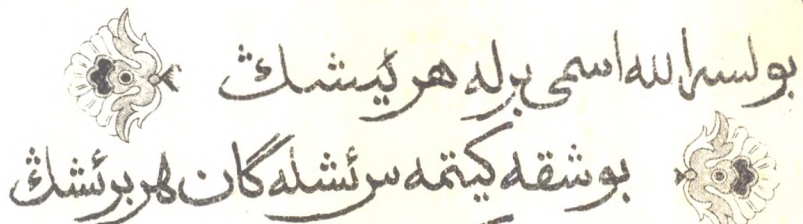 بولسه الله اسمی برله هر ئیشنڭ
بوشقه کیتمه س ئشله گان هر بر ئشنڭ